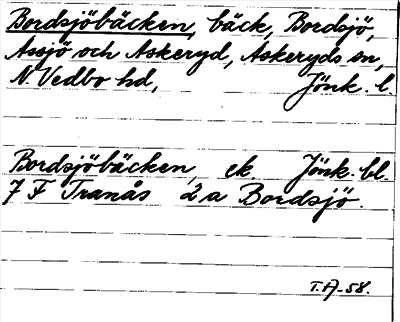 Bordsjöbäcken, bäck, Bordsjö,
Assjö och Askeryd, Askeryds sn,
N Vedbo hd, Jönk. l.
Bordsjöbäcken, ek. Jönk. bl.
7 F Tranås 2a Bordsjö.
T.A-58.